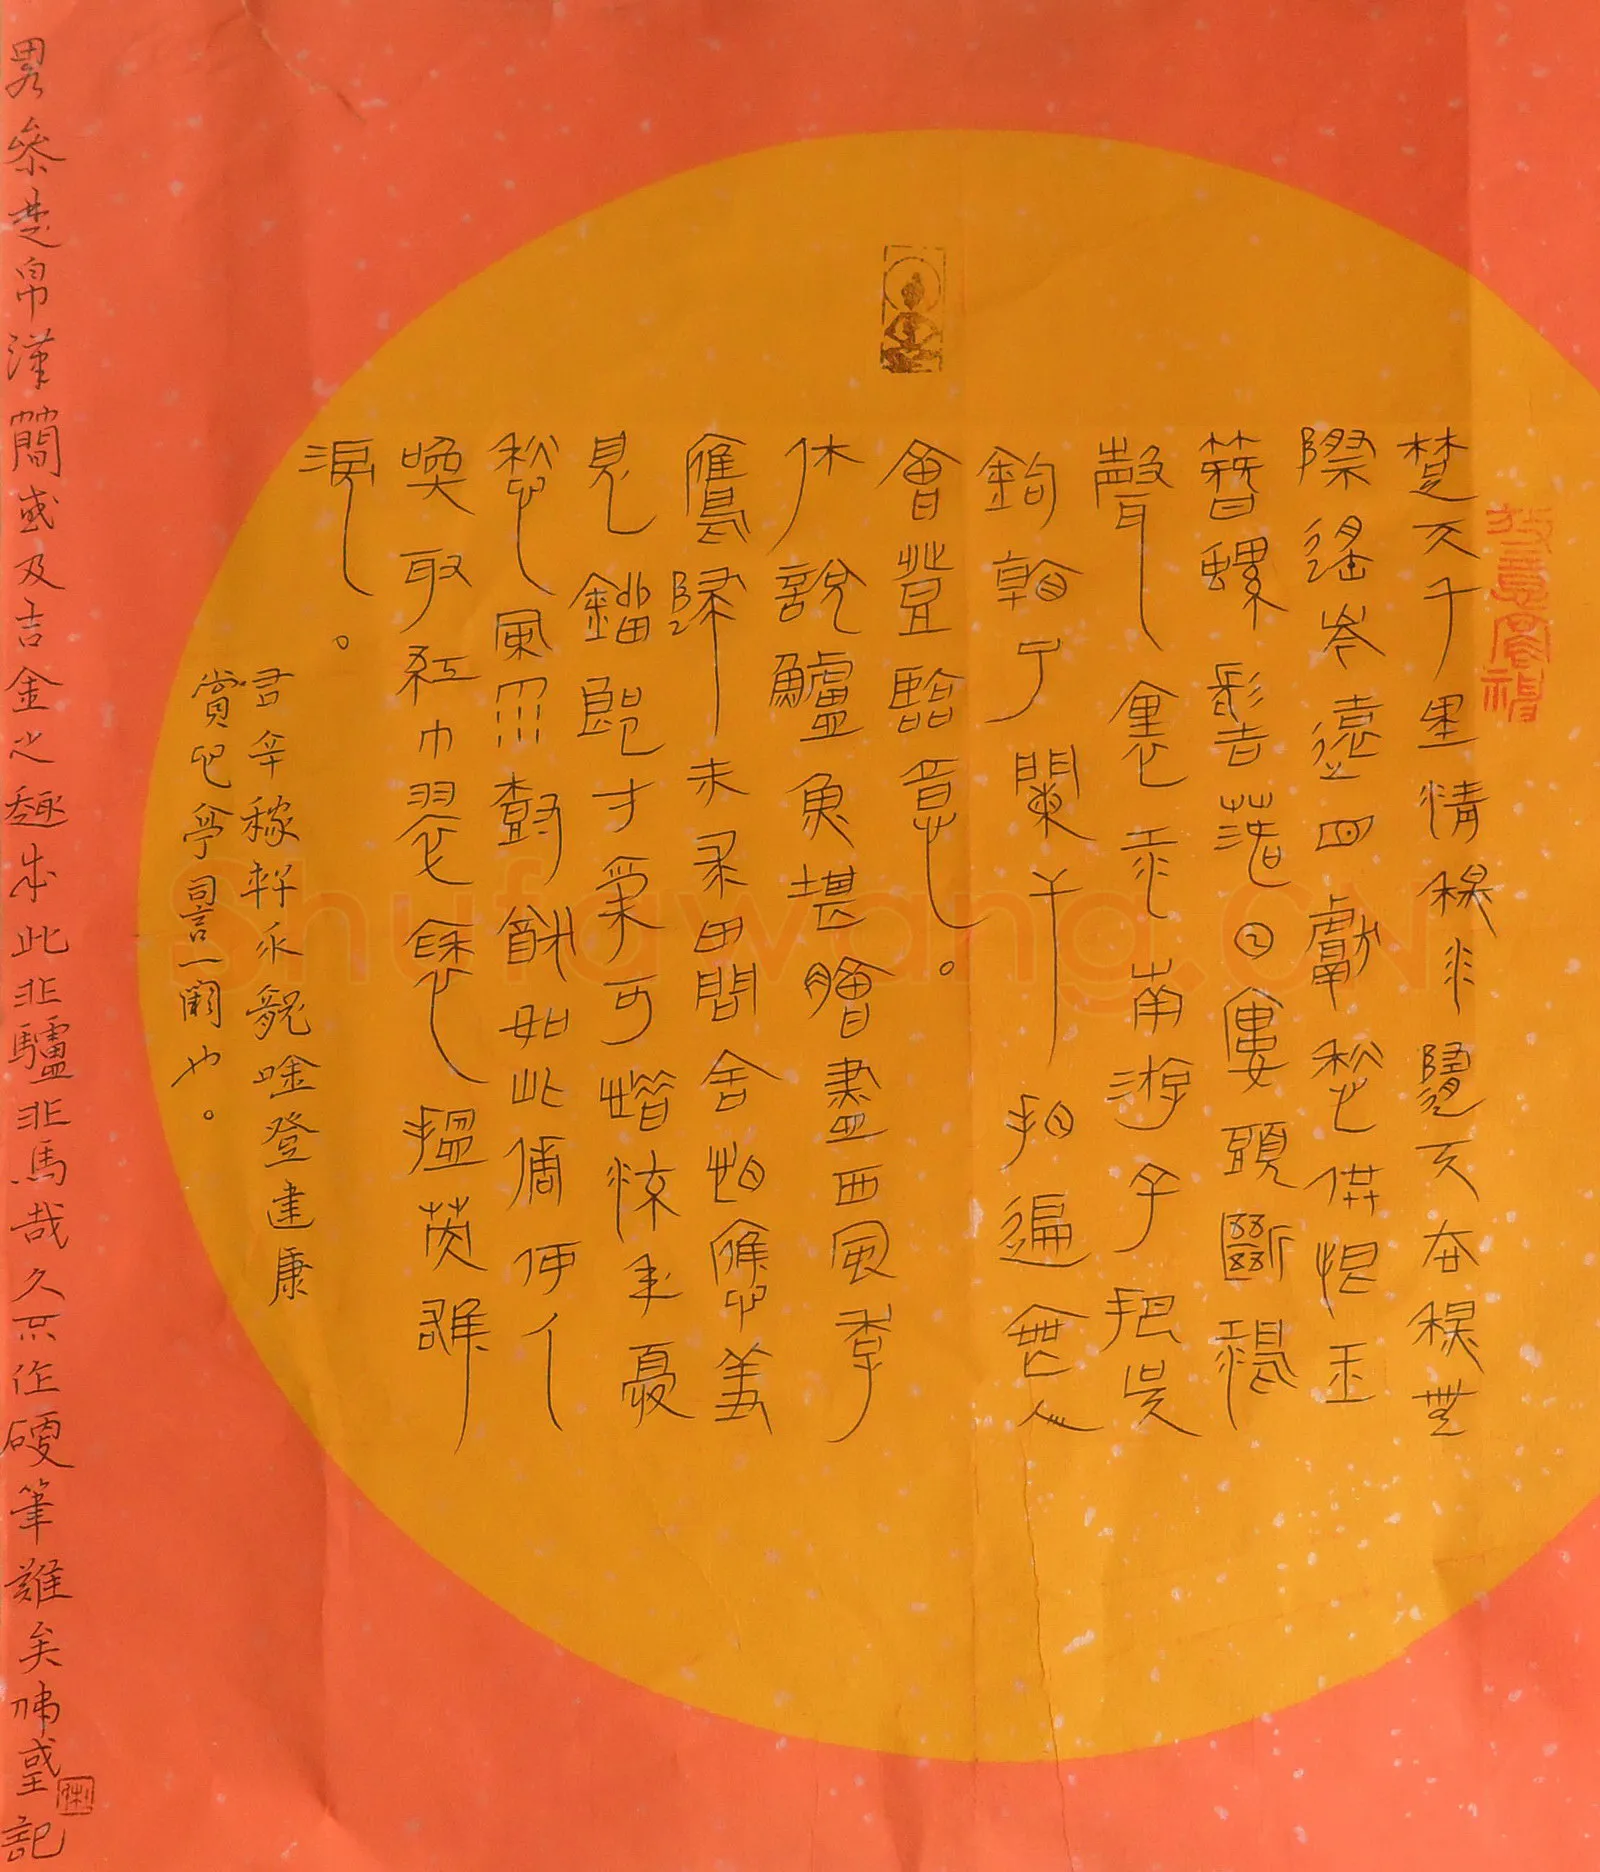 楚天千里情秋水隨天去秋無
際遙岑遠目獻愁供恨玉
簪螺髻落日樓頭斷鴻
聲裏江南游子把吳
鉤看了闌干拍遍無人
會登臨意。
休說鱸魚堪膾盡西風季
鷹歸未求田問舍怕應羞
見劉郎才氣可惜流年憂
愁風雨樹猶如此倩何人
喚取紅巾翠袖搵英雄
淚。
書辛稼軒水龍吟登建康
賞心亭詞一闋也。
畧參楚帛漢簡或及吉金之趣成此非驢非馬哉久不作硬筆難矣
記
Shufawang.CN